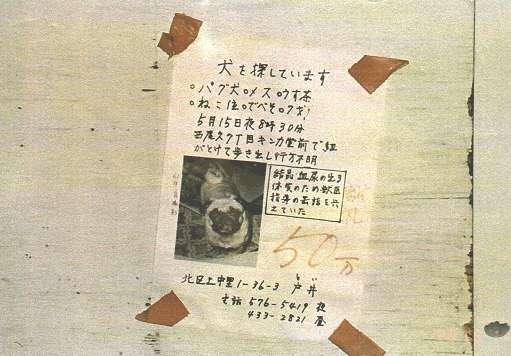 犬を探しています
○パグ犬○メス○うす茶
○ねこ位○でべそ○7才!
5月15日夜8時30分
西尾久7丁目キンカ堂前で紐
がとけて歩き出し行方不明
結晶血尿の出る
体質のため獣医
指導の最指を共
えていた
謝礼
50万
北区上中里1-36-3 戸井
とい
電話 576-5419 夜
433-2821 昼